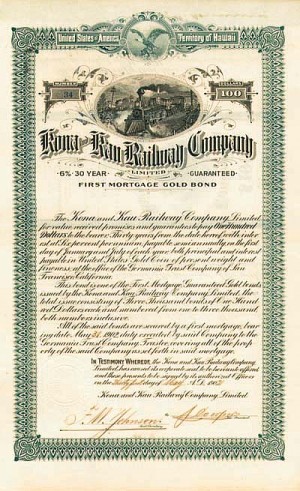 United States of America Territory of Hawaii
NUMBER DOLLARS
31 100
Kona and Kau Railway Company
LIMITED
6% 30 YEAR GUARANTEED
FIRST MORTGAGE GOLD BOND
The Kona and Kau Railway Company Limited
for value received promises and guarantees to pay One Hundred
Dollars to the bearer Thirty years from the date hereof with inter-
est at Six per cent per annum, payable semi annually on the first
day of January and July of each year both principal and interest
payable in United States Gold Coin of present weight and
fineness, at the office of the Germania Trust Company of San
Francisco California.
This bond is one of the First Mortgage Guaranteed Gold bonds
issued by the Kona and Kau Railway Company Limited, the
total issue consisting of Three Thousand bonds of One Hund-
red Dollars each and numbered from one to three thousand
both numbers inclusive.
All of the said bonds are secured by a first mortgage, bear-
ing date May 31 1902 duly executed by said Company to the
Germania Trust Company Trustee, covering all of the prop-
erty of the said Company as set forth in said mortgage.
In Testimony Whereof, the Kona and Kau Railway Company
Limited has caused its corporate seal to be hereunto affixed
and these presents to be signed by its authorized Officers
on the Thirty first day of May A.D. 1902
Kona and Kau Railway Company Limited.
Johnson